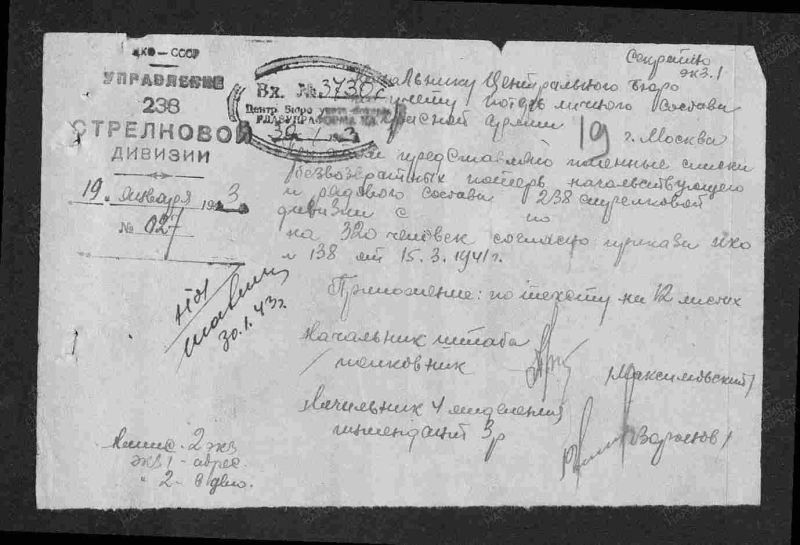 НКО — СССР
УПРАВЛЕНИЕ
238
СТРЕЛКОВОЙ
ДИВИЗИИ
19. января 1943
№ 027
Вх. № 37306
Центр. Бюро
30 / 1 3
Секретно
экз. 1
Начальнику Центрального Бюро
по учету потерь личного состава
Красной армии
19 г. Москва
представляю именные списки
безвозвратных потерь начальствующего
и рядового состава 238 стрелковой
дивизии с по
на 320 человек согласно приказа НКО
№ 138 от 15.3.1941 г.
Приложение: по тексту на 12 листах
30.1.43 г.
Начальник штаба
полковник /Максимовский/
Начальник 4 отделения
интендант 3 р
2 экз
экз 1 - адрес.
" 2 - в дело.